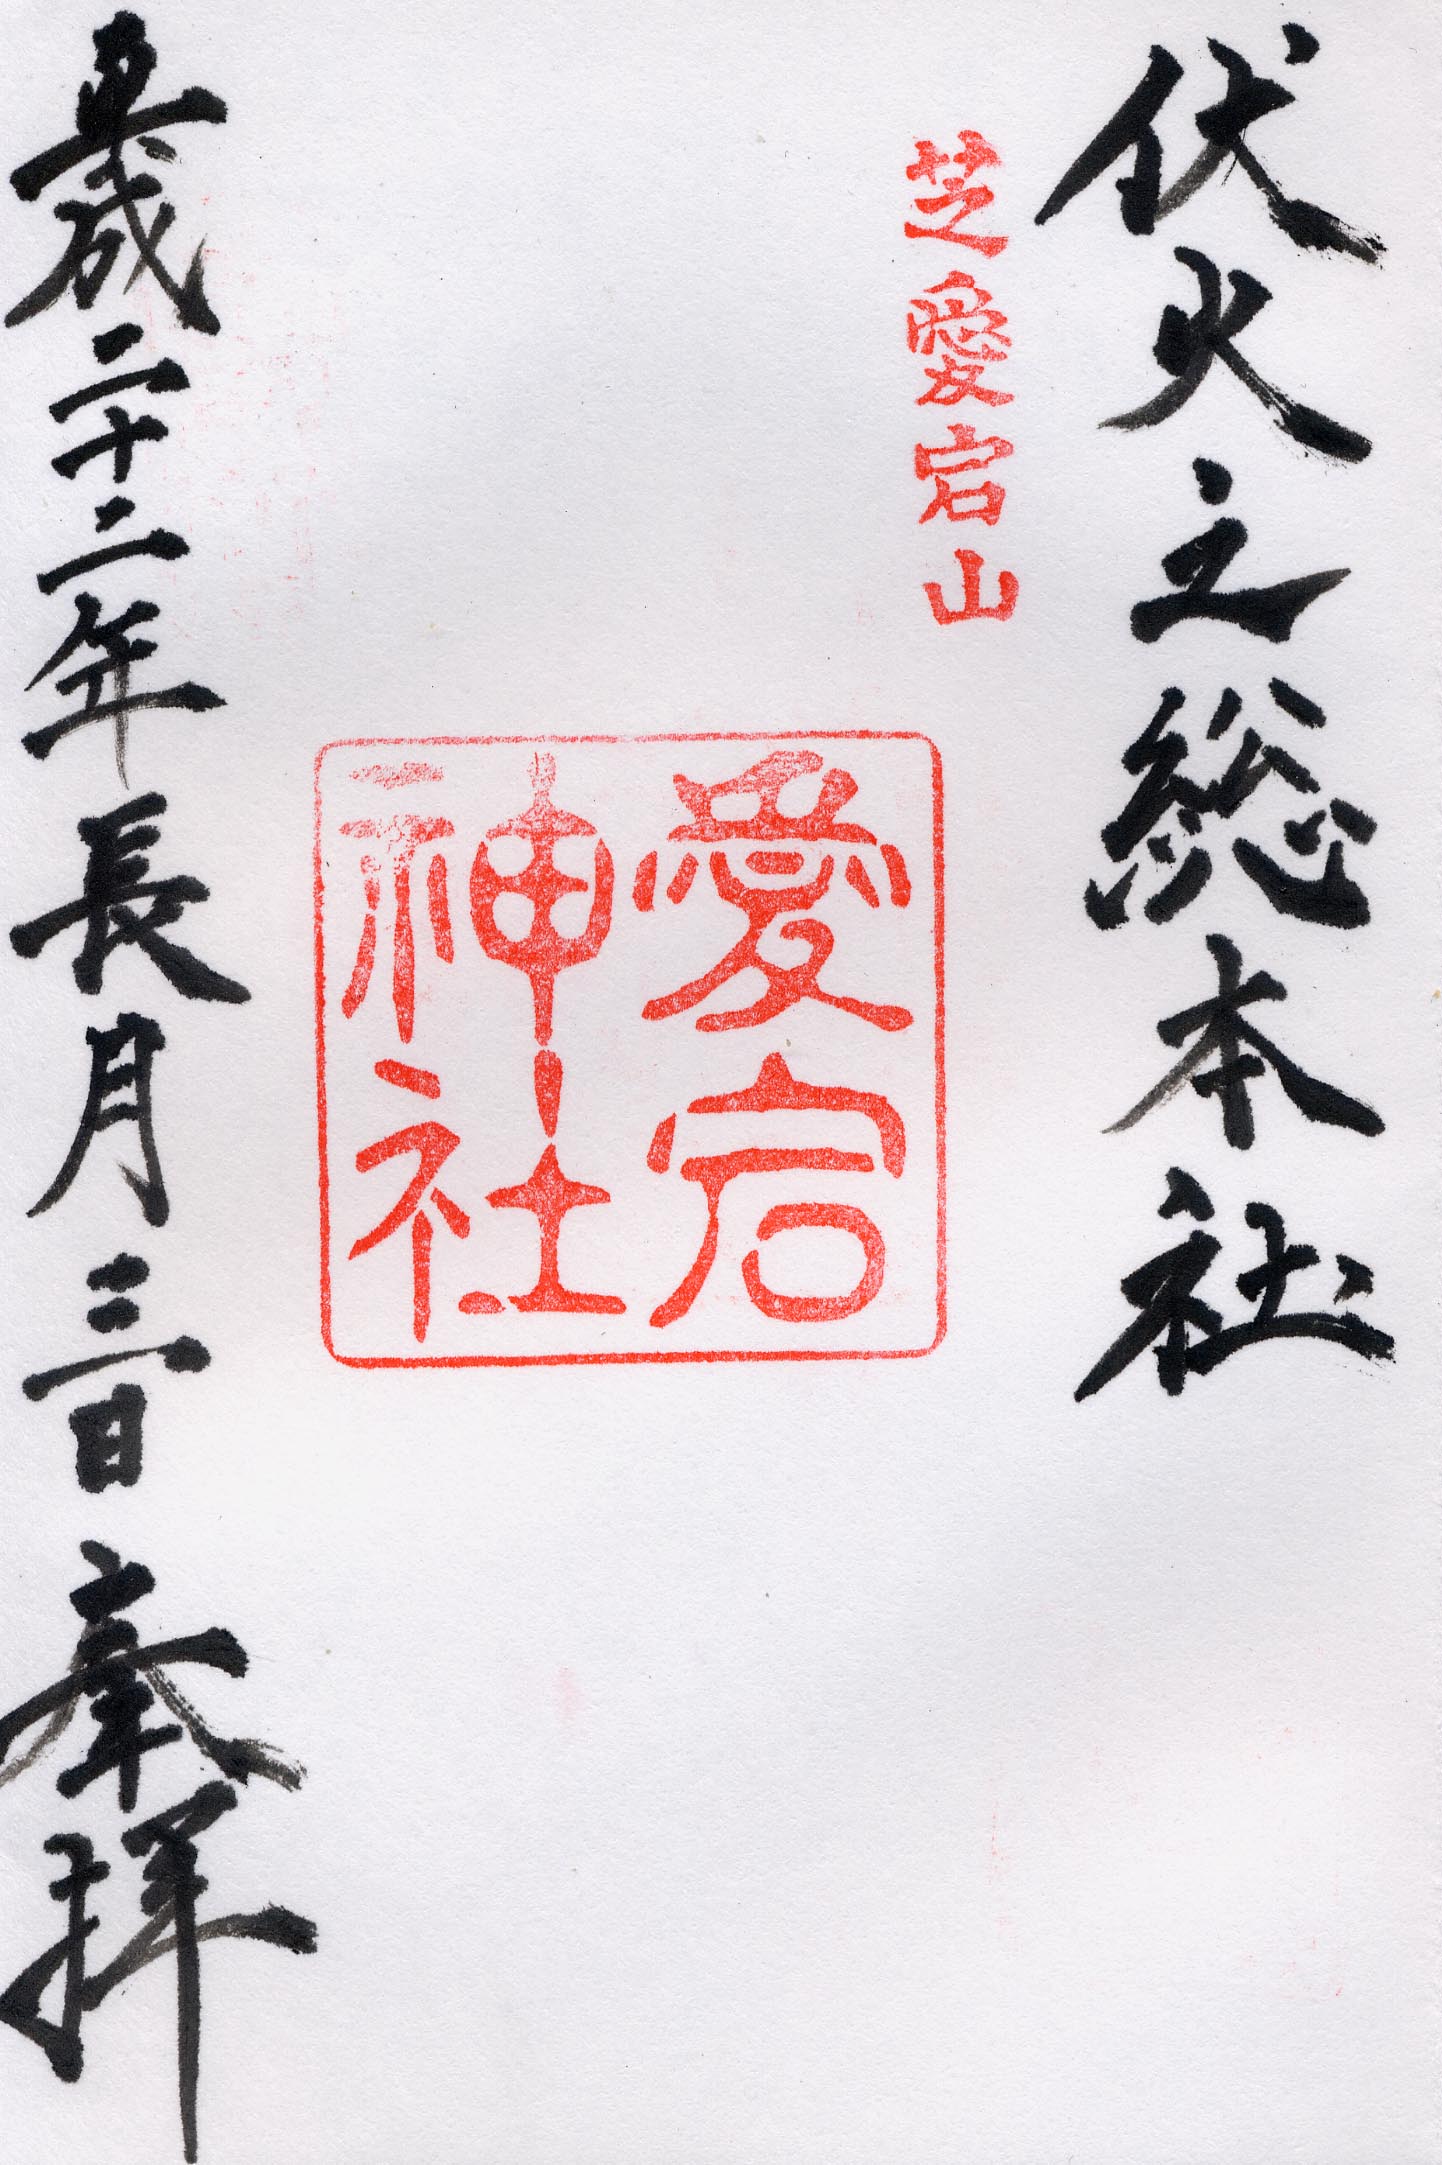 伏火之総本社
芝愛宕山
愛宕
神社
平成二十二年長月三日 奉拝